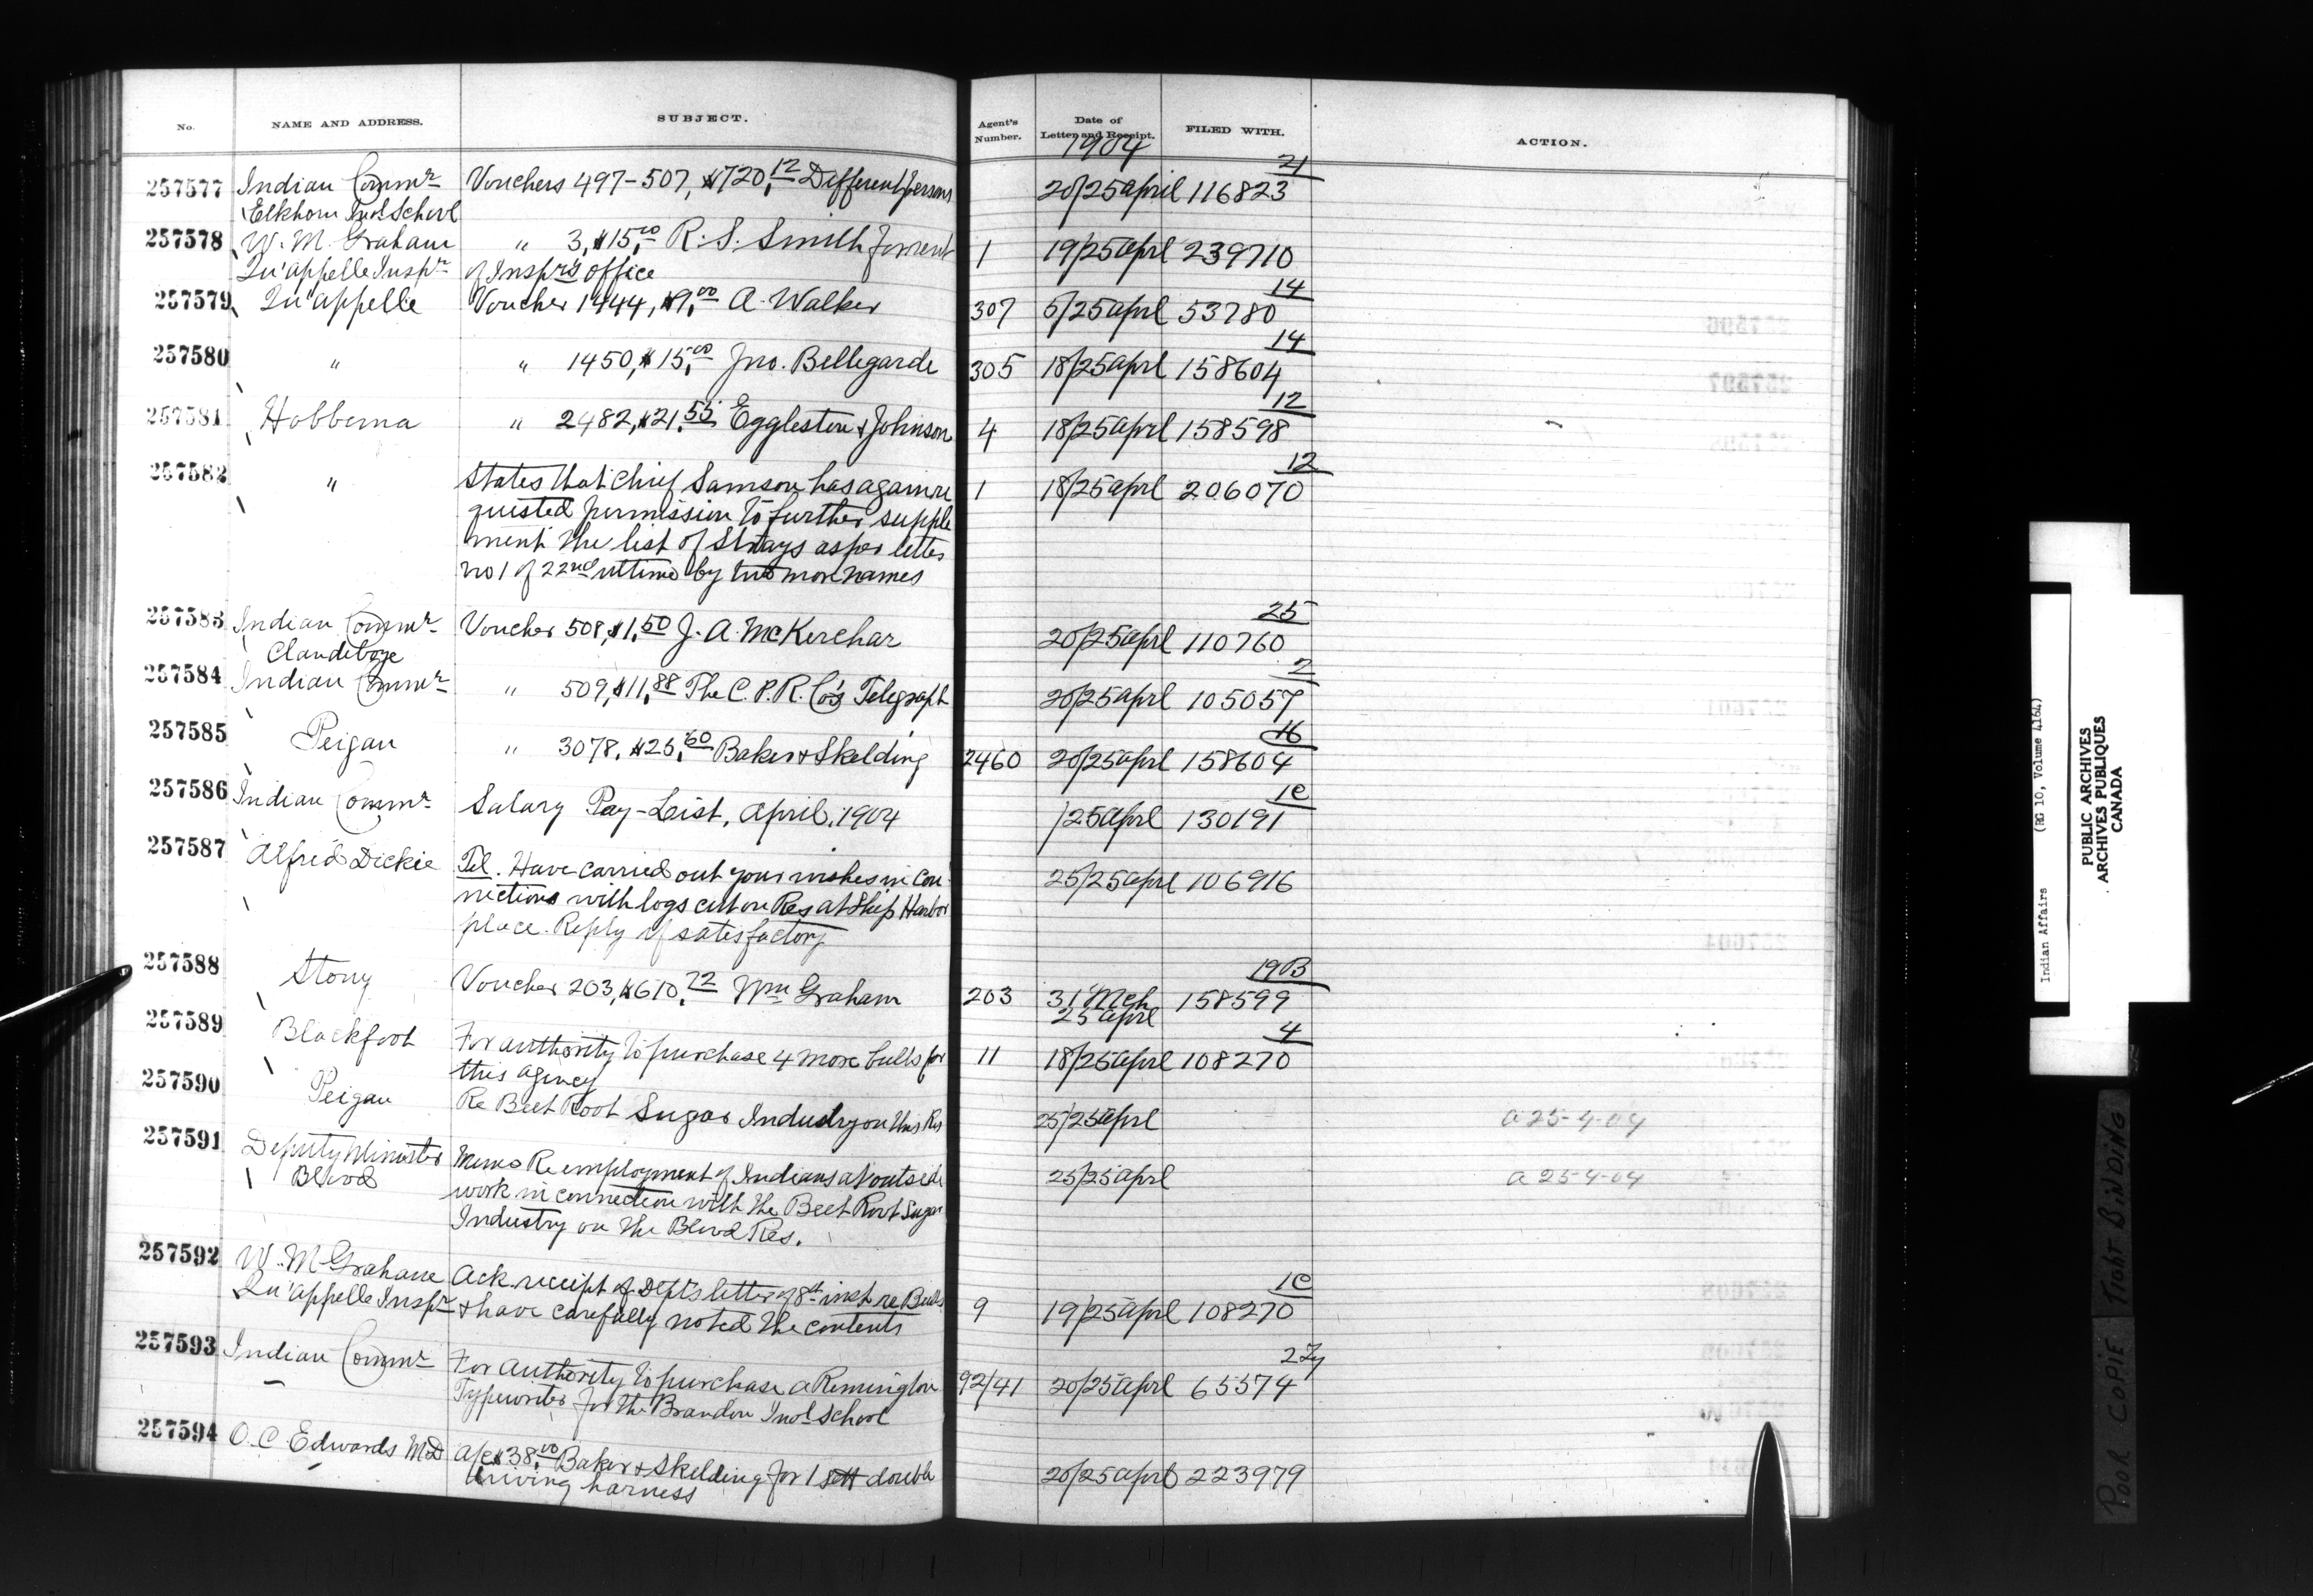 No. NAME AND ADDRESS. SUBJECT. Agent's Number. Date of Letter and Receipt. FILED WITH. ACTION.
1904
21
257577 Indian Commr Vouchers 497-507, $720.12 Different persons 20/25 April 116823
Elkhorn Indl School
257578 W. M. Graham " 3, $15.00 R. S. Smith for rent 1 19/25 Aprl 239710
Qu'appelle Inspr of Inspr's office
14
257579 Qu'appelle Voucher 1444, $9.00 A. Walker 307 5/25 Aprl 53780
14
257580 " " 1450, $15.00 Jno. Bellegarde 305 18/25 Aprl 158604
12
257581 Hobbema " 2482, $21.55 Eggleston & Johnson 4 18/25 Aprl 158598
12
257582 " States that Chief Samson has again re 1 18/25 Aprl 206070
quested permission to further supple
ment the list of Strays as per letter
no 1 of 22nd ultimo by two more names
25
257583 Indian Commr Voucher 508, $1.50 J. A. McKerchar 20/25 Aprl 110760
Clandeboye
2
257584 Indian Commr " 509, $11.88 The C. P. R. Co's Telegraph 20/25 Aprl 105057
16
257585 Peigan " 3078, $25.60 Baker & Skelding 2460 20/25 Aprl 158604
1C
257586 Indian Commr Salary Pay-List, April, 1904 /25 Aprl 130191
257587 Alfred Dickie Tel. Have carried out your wishes in con 25/25 Aprl 106916
nections with logs cut on Res at Ship Harbor
place. Reply if satisfactory
19B
257588 Stony Voucher 203, $610.72 Wm Graham 203 31 Mch 158599
25 Aprl
4
257589 Blackfoot For authority to purchase 4 more bulls for 11 18/25 Aprl 108270
this agency
257590 Peigan Re Beet Root Sugar Industry on this Res 25/25 Aprl a 25-4-04
257591 Deputy Minister Memo Re employment of Indians at outside 25/25 Aprl a 25-4-04
Blood work in connection with the Beet Root Sugar
Industry on the Blood Res.
1C
257592 W. M Graham Ack. receipt of Dept's letter of 8th inst re Bulls 9 19/25 Aprl 108270
Qu'appelle Inspr & have carefully noted the contents
257593 Indian Commr For authority to purchase a Remington 92/41 20/25 Aprl 65574
Typewriter for the Brandon Indl School
257594 O. C. Edwards MD A/c $38.00 Baker & Skelding for 1 sett double 20/25 Aprl 223979
driving harness
Indian Affairs (RG 10, Volume 4164)
PUBLIC ARCHIVES
ARCHIVES PUBLIQUES
CANADA
POOR COPIE TIGHT BINDING